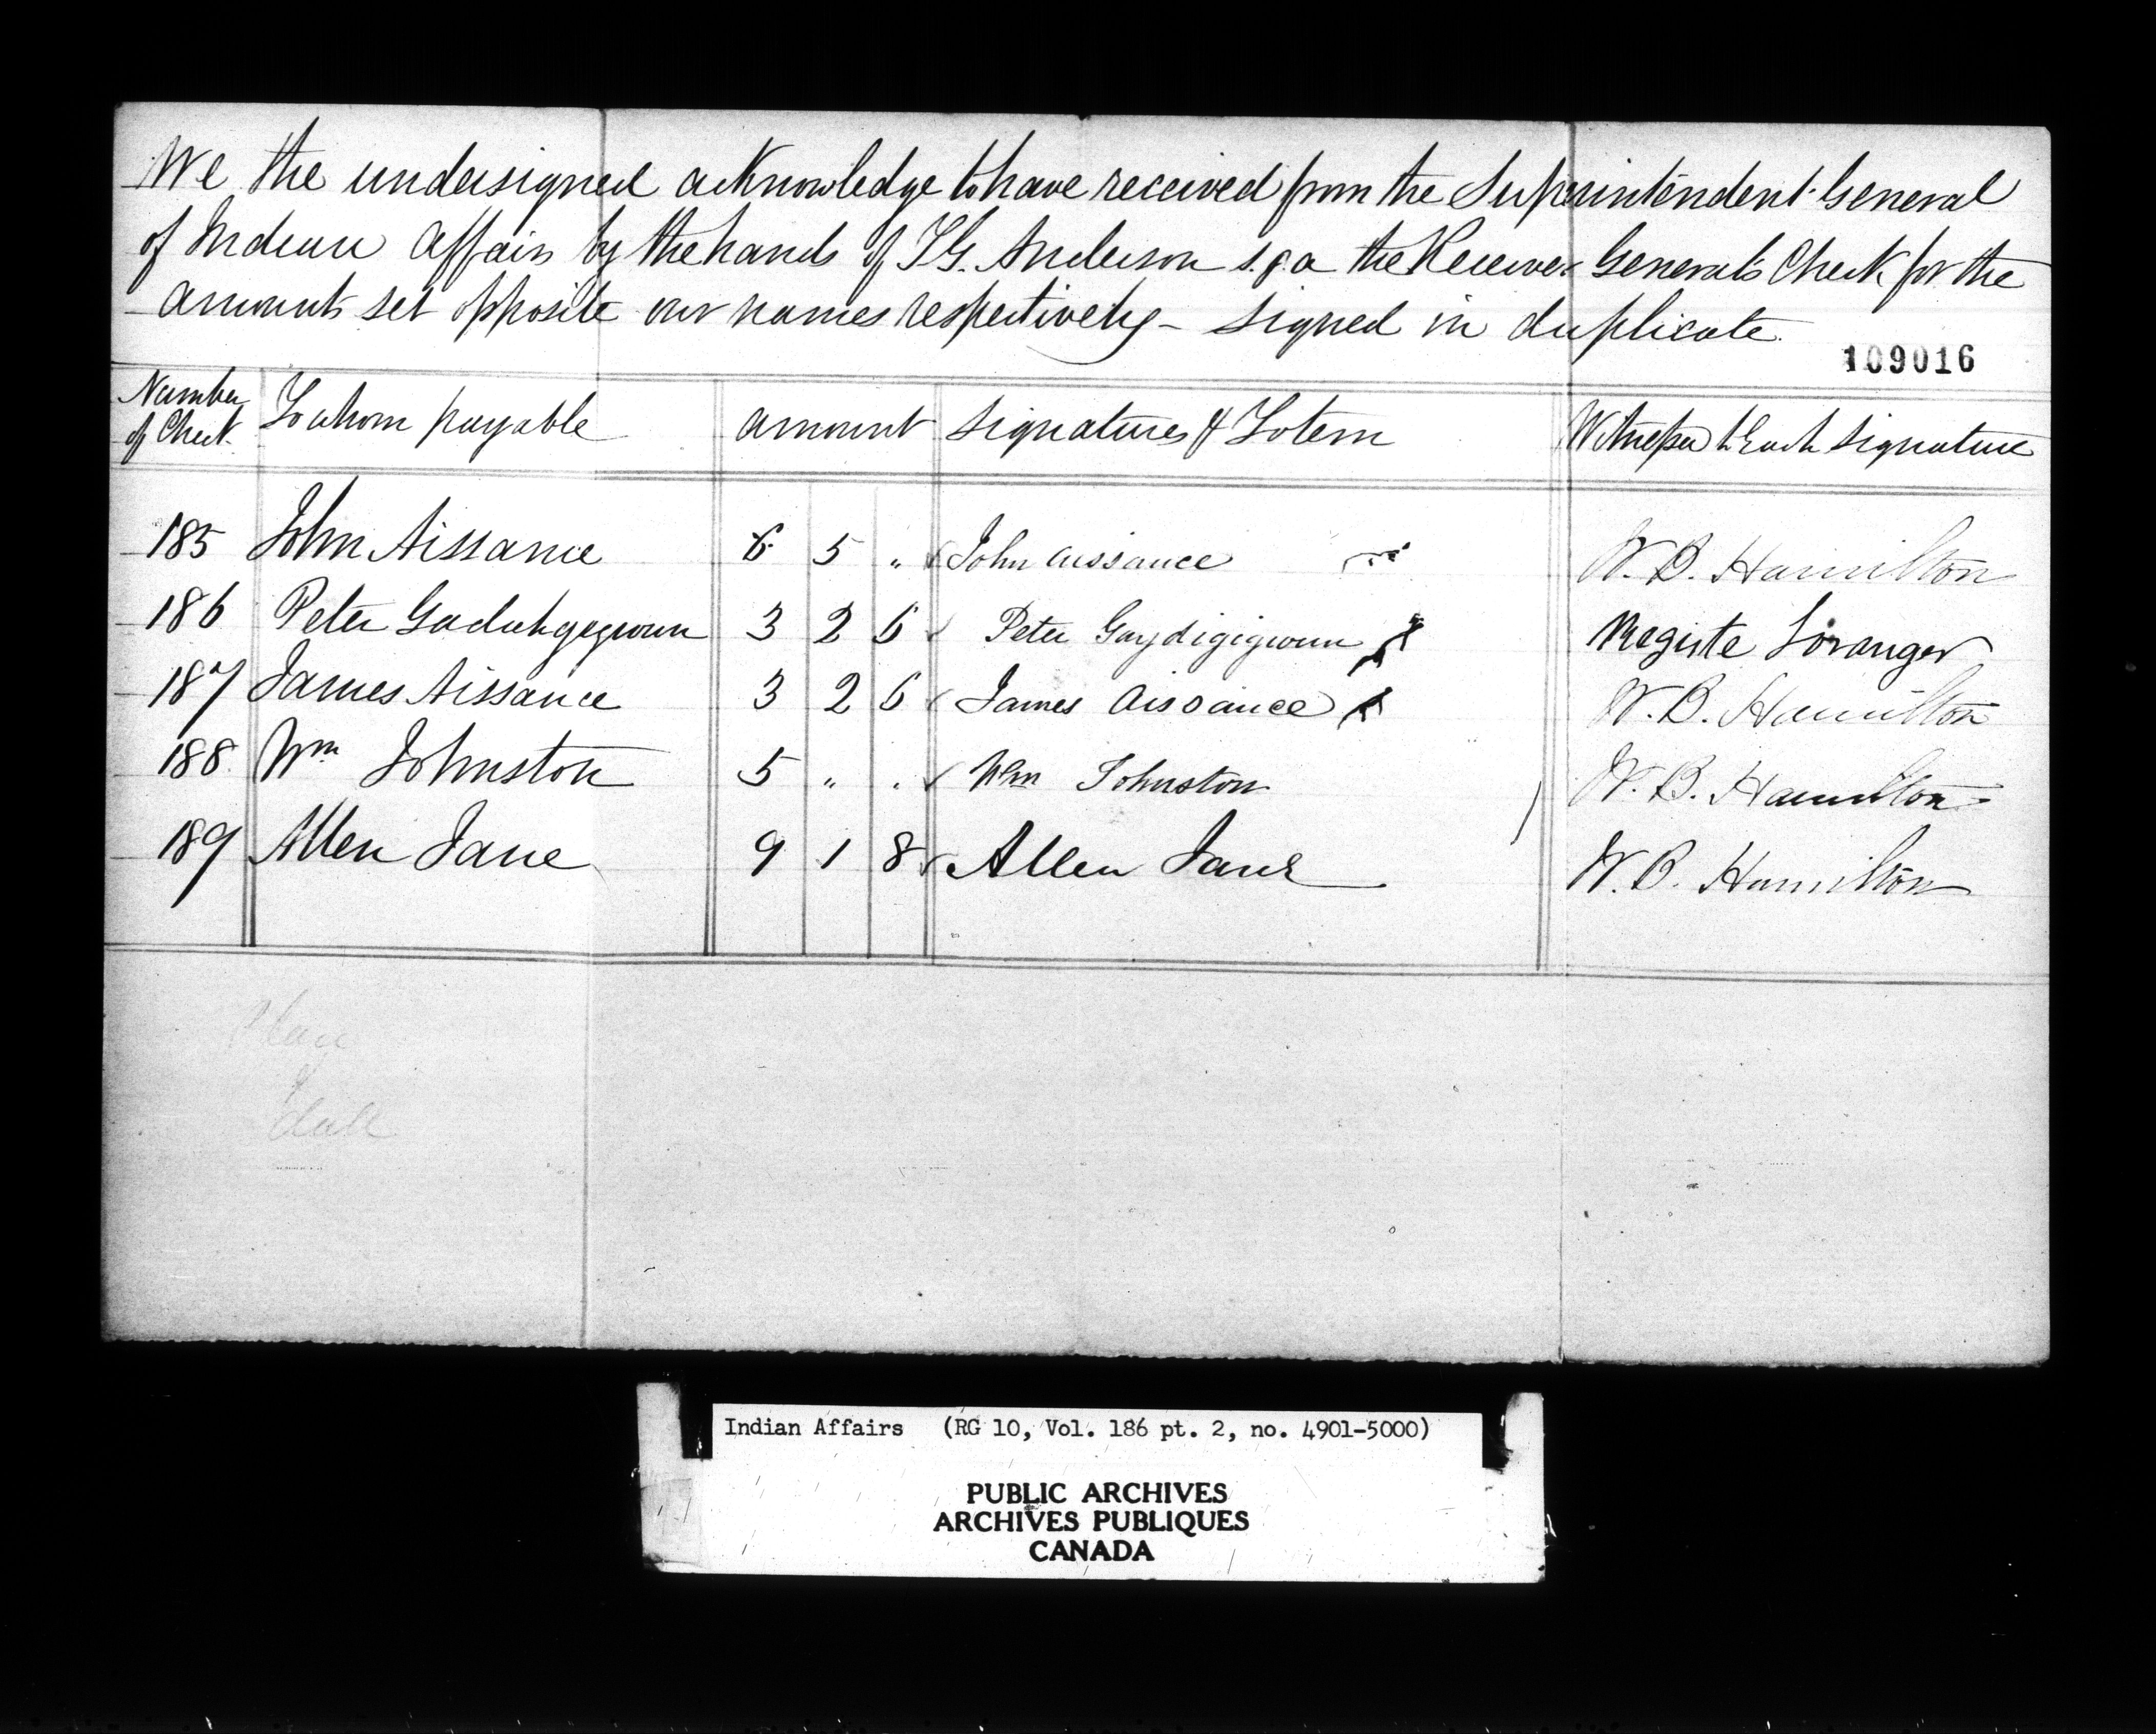 We the undersigned acknowledge to have received from the Superintendent General
of Indian Affairs by the hands of T.G. Anderson s.g.a the Receiver Generals Check for the
amounts set opposite our names respectively – signed in duplicate.
109016
Number of Check To whom payable amount signatures & Totem Witnesses to Each signature
185 John Aissance 6 5 " John aissance W. B. Hamilton
186 Peter Gaduhgegwun 3 2 6 Peter Gaydigigwun Registe Loranger
187 James Aissance 3 2 6 James Aissance W. B. Hamilton
188 Wm Johnston 5 " " Wm Johnston W. B. Hamilton
189 Allen Jane 9 1 8 Allen Jane W. B. Hamilton
Place
&
date
Indian Affairs (RG 10, Vol. 186 pt. 2, no. 4901-5000)
PUBLIC ARCHIVES
ARCHIVES PUBLIQUES
CANADA